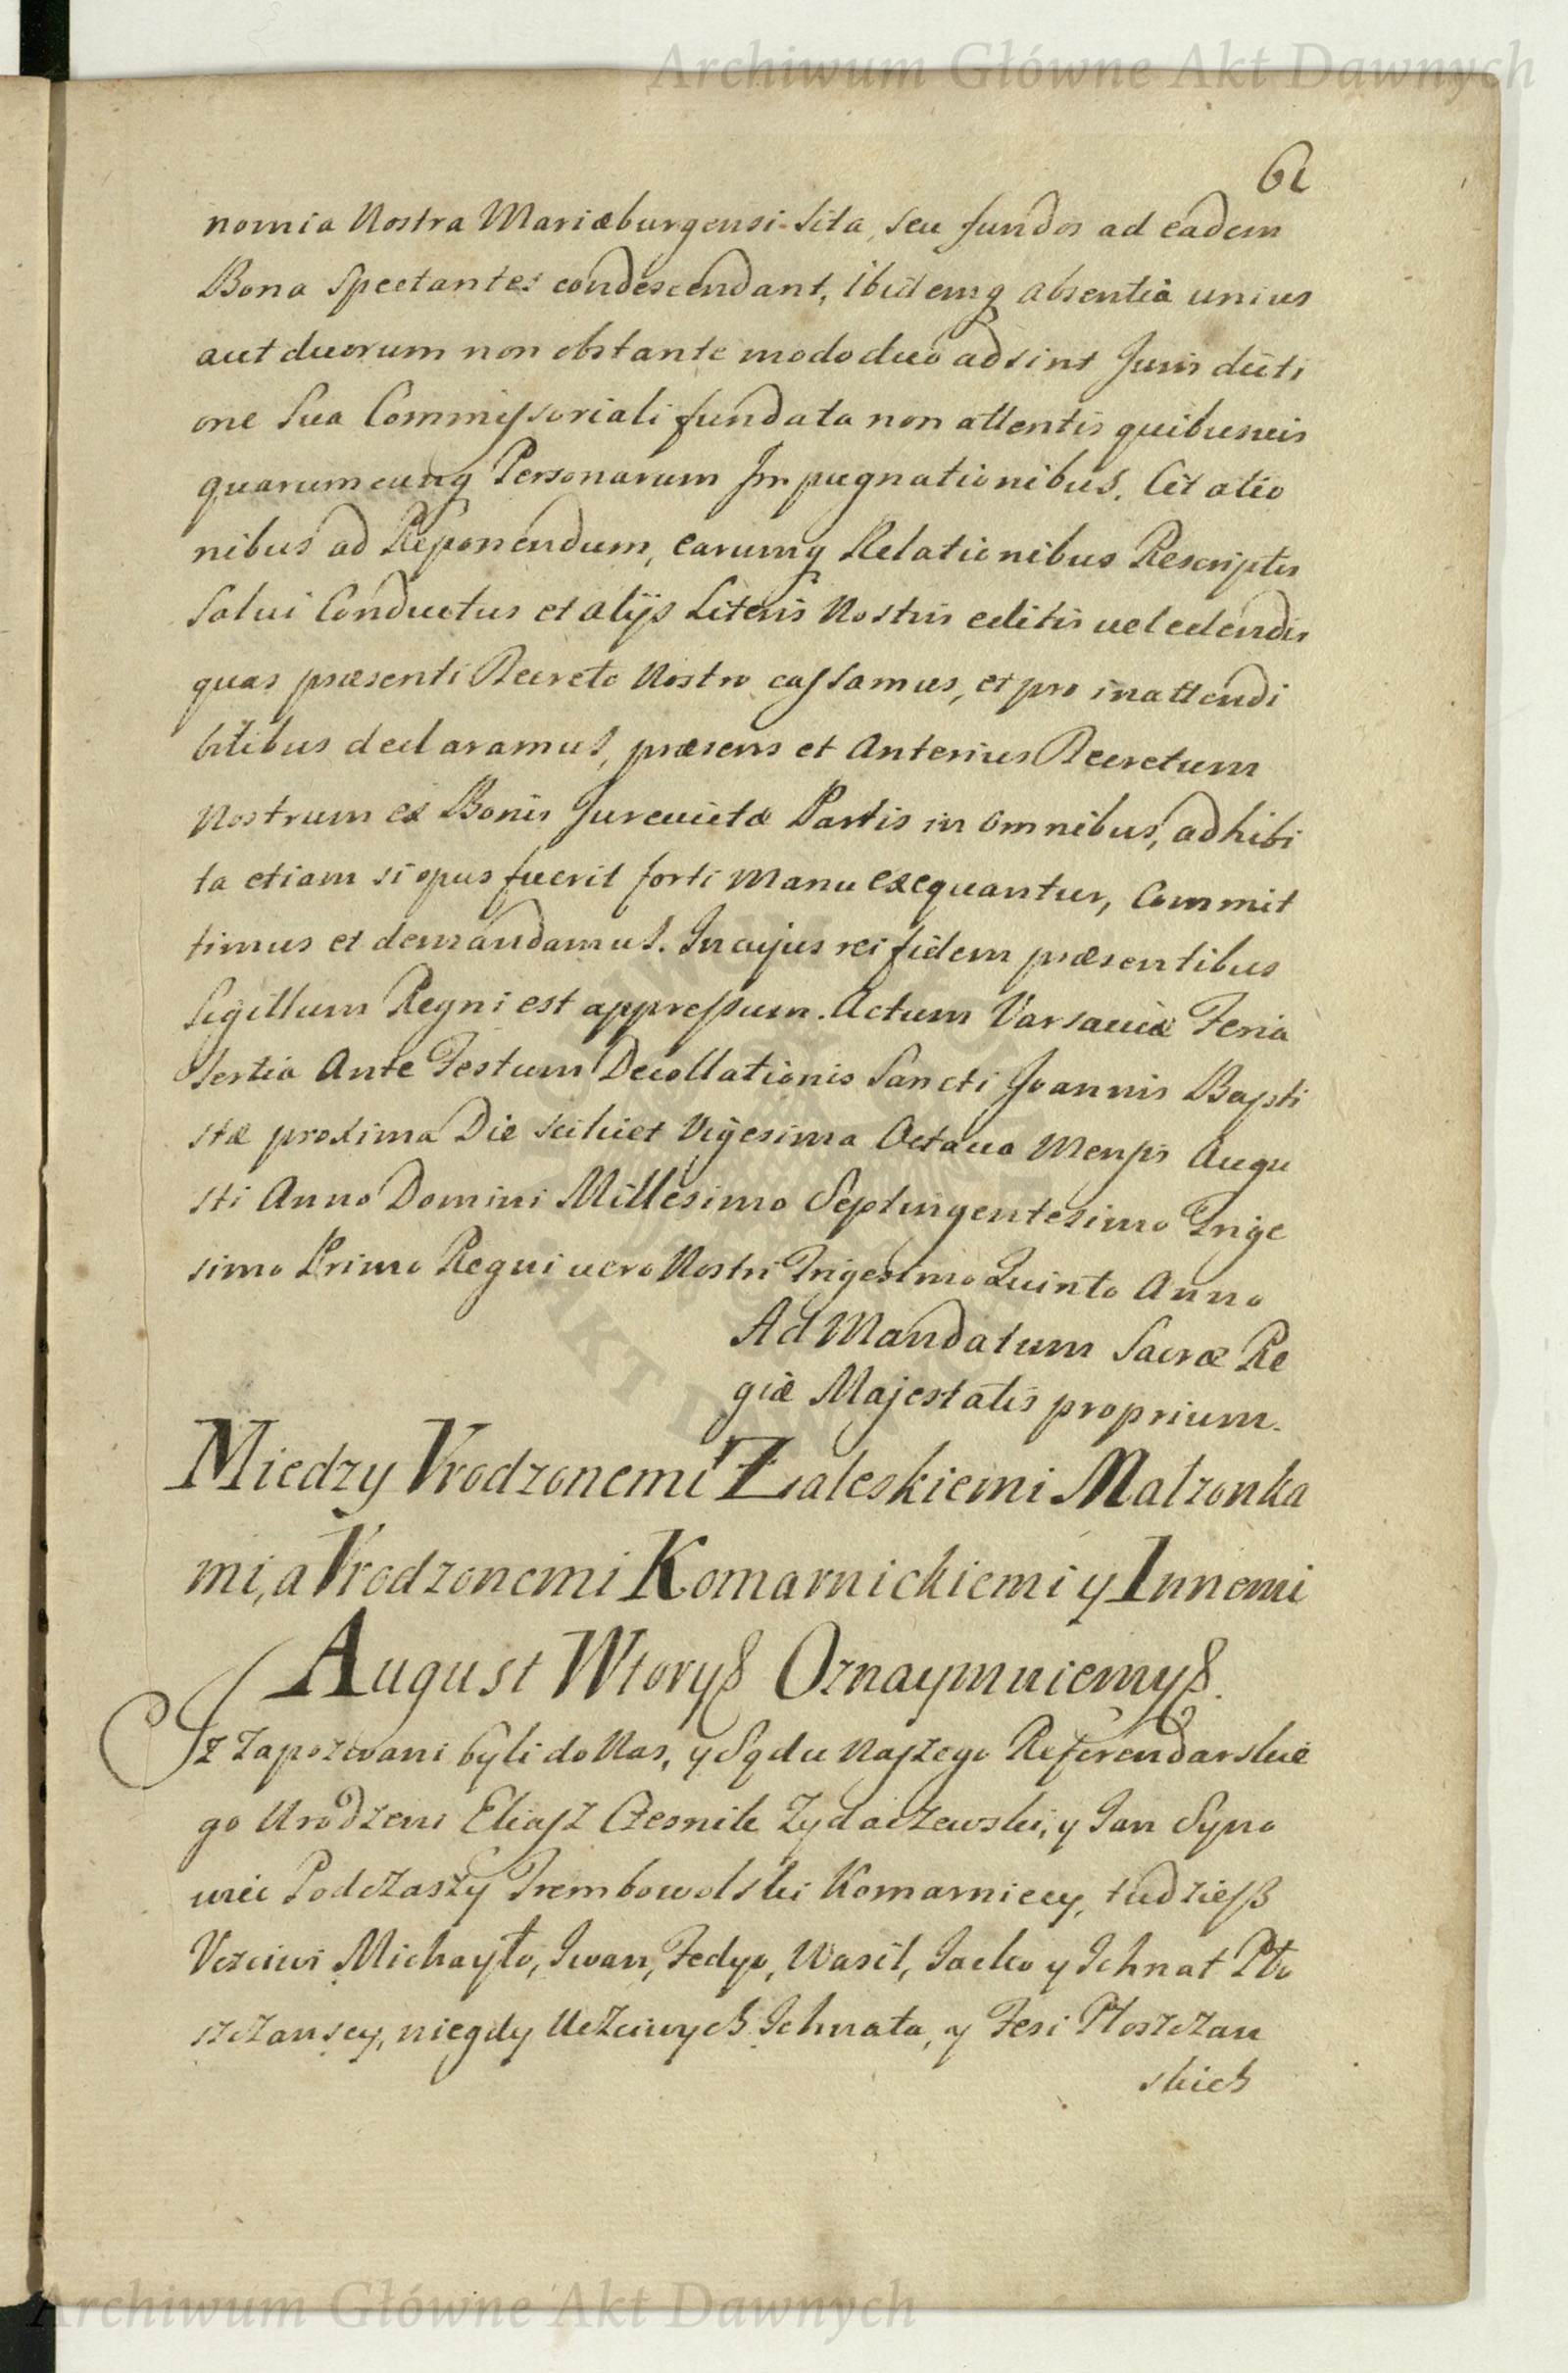 Archiwum Główne Akt Dawnych
61
nomia Nostra Mariæburgensi sita, seu fundos ad eadem
Bona Spectantes condescendant, Ibidemq absentia unius
aut duorum non obstante modo duo adsint Jurisdicti
one sua Commissoriali fundata non attentis quibusuis
quarumcunq Personarum Impugnationibus, Citatio
nibus ad Reponendum, earumq Relationibus Rescriptis
Salui Conductus et alijs Literis Nostris editis uel edendis
quas præsenti Decreto Nostro cassamus, et pro inattendi
bilibus declaramus, præsens et Anterius Decretum
Nostrum ex Bonis Jureuictæ Partis in omnibus, adhibi
ta etiam si opus fuerit forti Manu exequantur, Commit
timus et demandamus. In cujus rei fidem præsentibus
Sigillum Regni est appressum. Actum Varsauiæ Feria
Tertia Ante Festum Decollationis Sancti Joannis Bapti
stæ proxima Die scilicet Vigesima Octaua Mensis Augu
sti Anno Domini Millesimo Septingentesimo Trige
simo Primo Regni uero Nostri Trigesimo Quinto Anno
Ad Mandatum Sacræ Re
giæ Majestatis proprium.
Miedzy Vrodzonemi Zaleskiemi Malzonka
mi, a Vrodzonemi Komarnickiemi y Innemi
August Wtory§ Oznaymuiemy§.
Iz Zapozwani byli do Nas, y Sądu Naszego Referendarskie
go Urodzeni Eliasz Czesnik Zydaczewski, y Jan Syno
wiec Podczaszy Trembowolski Komarniccy, tudziesz
Vczciwi Michayło, Iwan, Fedyo, Wasil, Jacko y Ichnat Pło
szczanscy, niegdy Uczciwych Ichnata, y Fesi Płoszczan
skich
Archiwum Główne Akt Dawnych